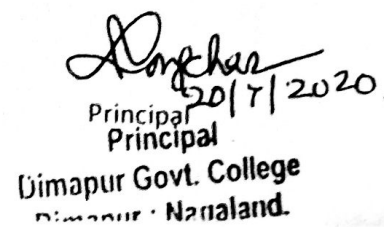 20/7/2020
Principal
Principal
Dimapur Govt. College
Dimapur : Nagaland.